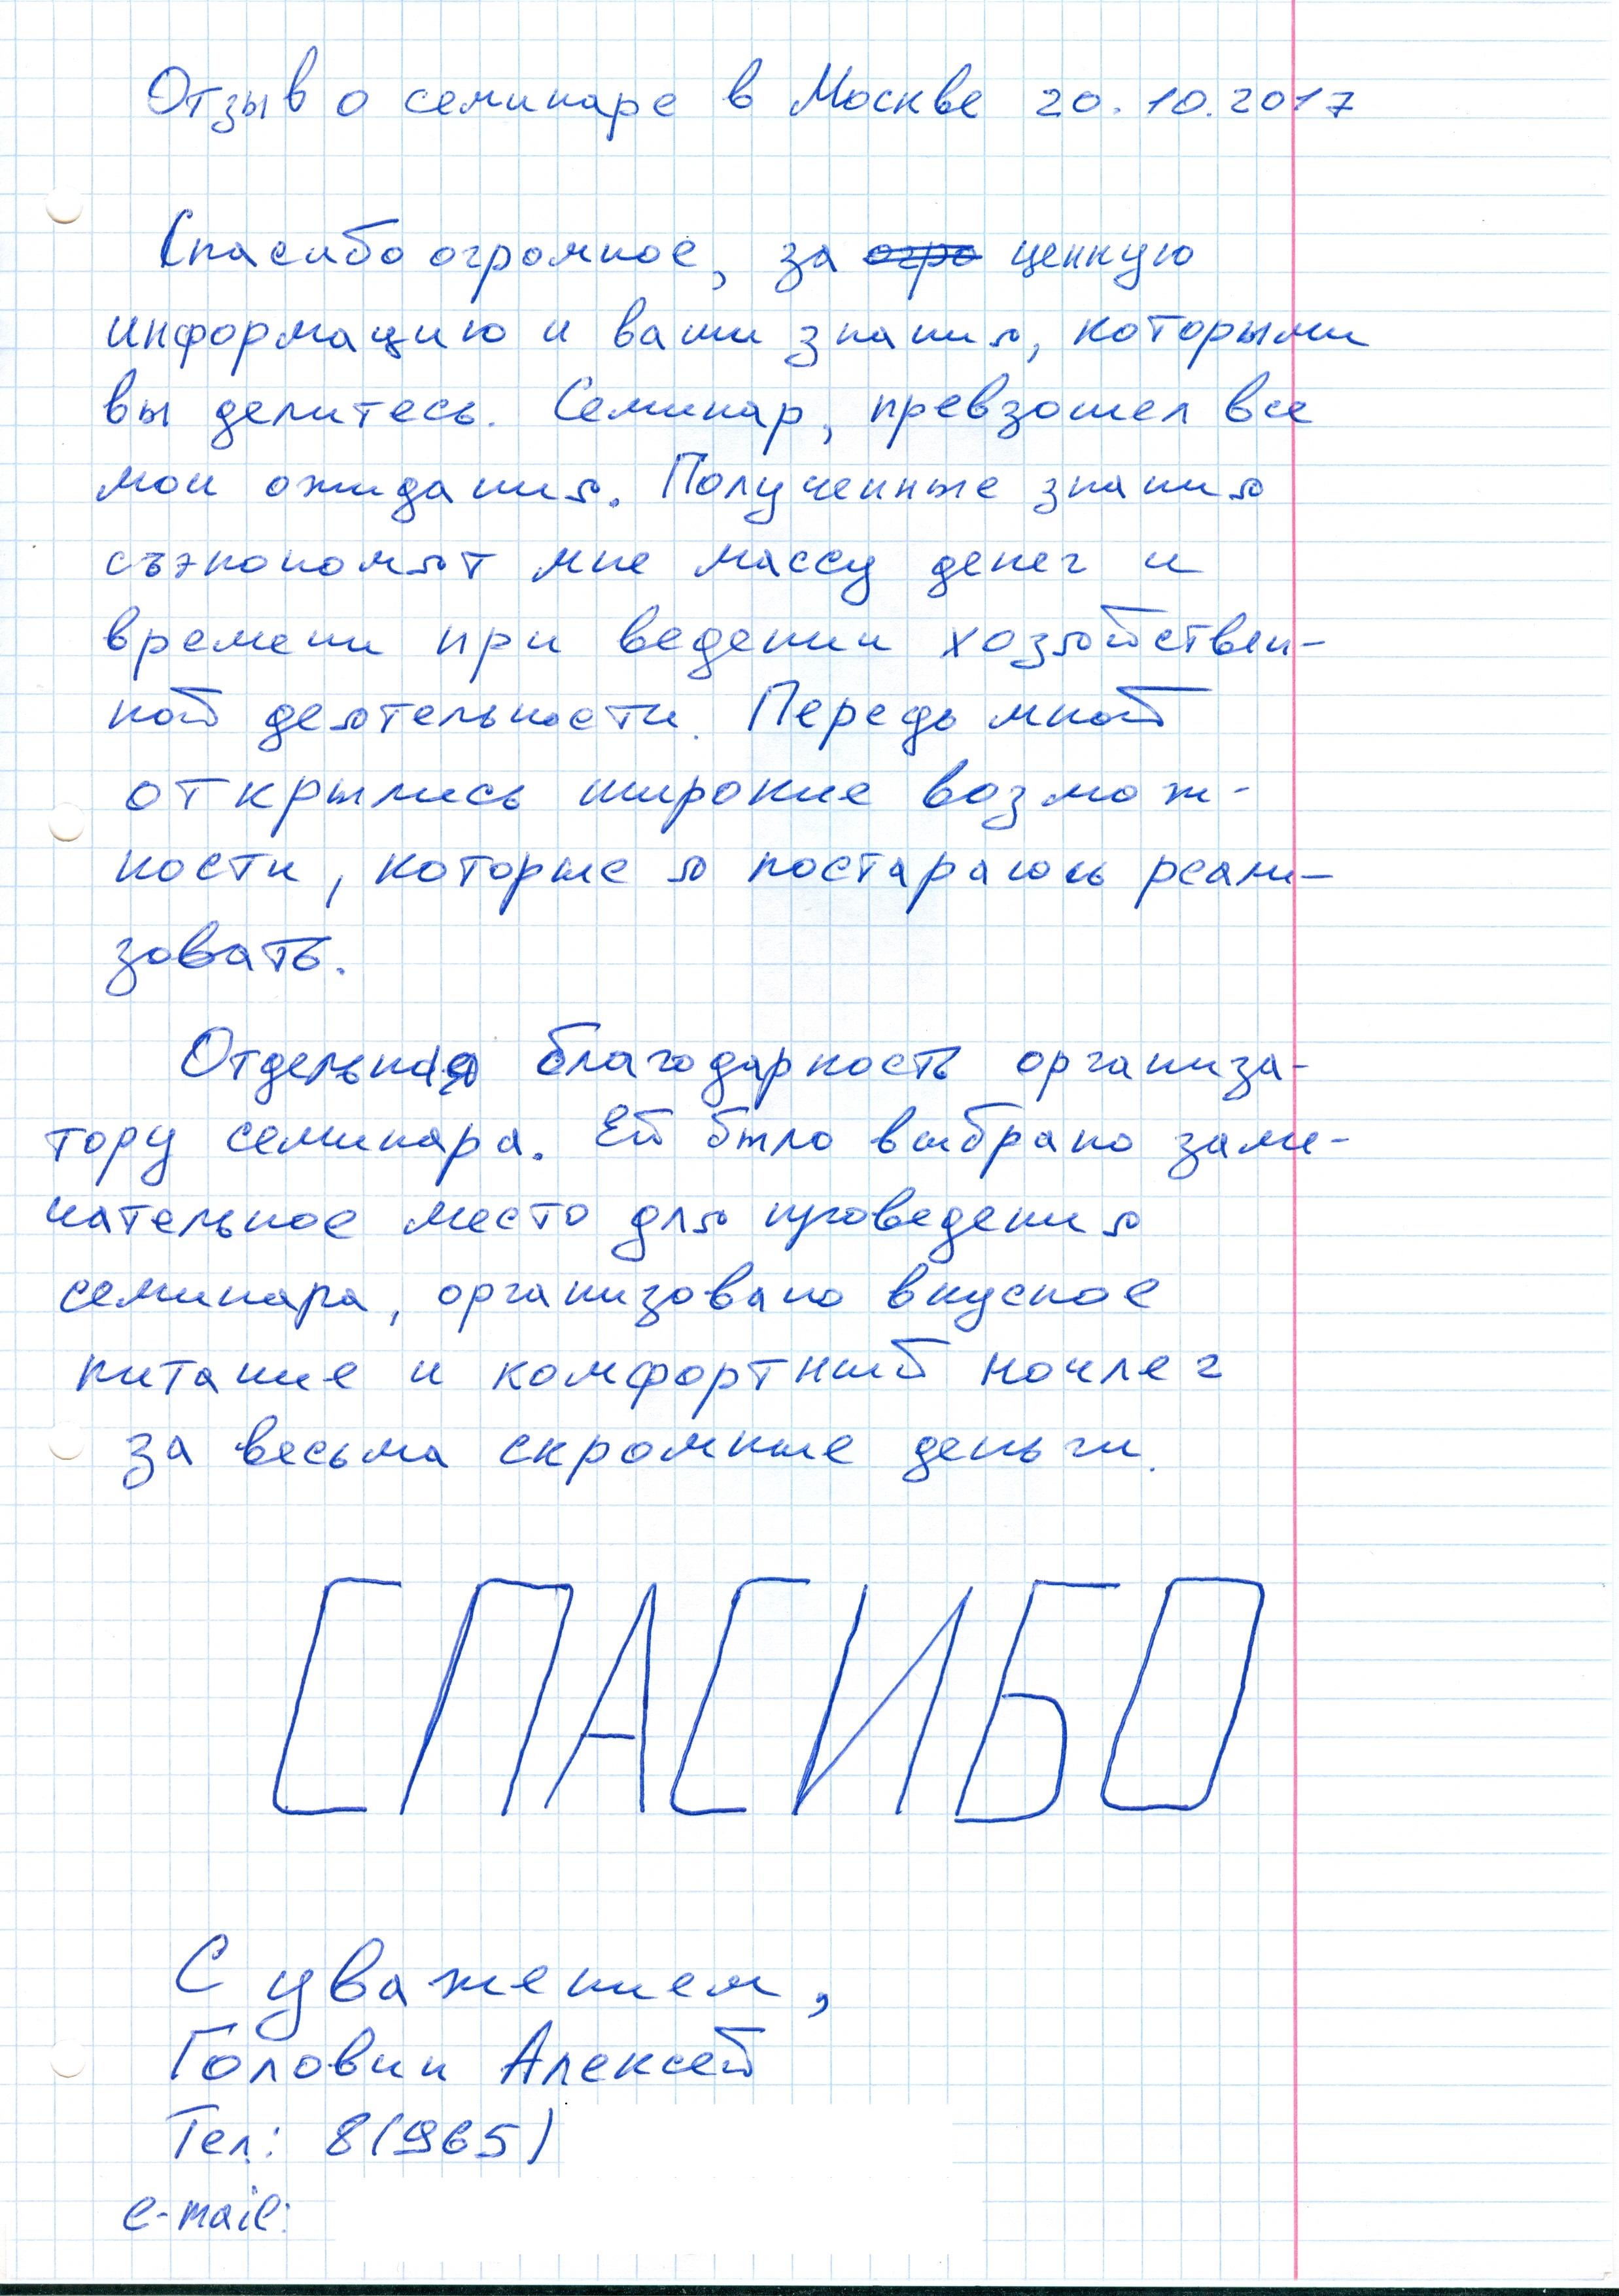 Отзыв о семинаре в Москве 20.10.2017
Спасибо огромное, за огро ценную
информацию и ваши знания, которыми
вы делитесь. Семинар, превзошел все
мои ожидания. Полученные знания
съэкономят мне массу денег и
времени при ведении хозяйствен-
ной деятельности. Передо мной
открылись широкие возмож-
ности, которые я постараюсь реали-
зовать.
Отдельная благодарность организа-
тору семинара. Ей было выбрано заме-
чательное место для проведения
семинара, организовано вкусное
питание и комфортный ночлег
за весьма скромные деньги.
СПАСИБО
С уважением,
Головин Алексей
Тел: 8(965)
e-mail: